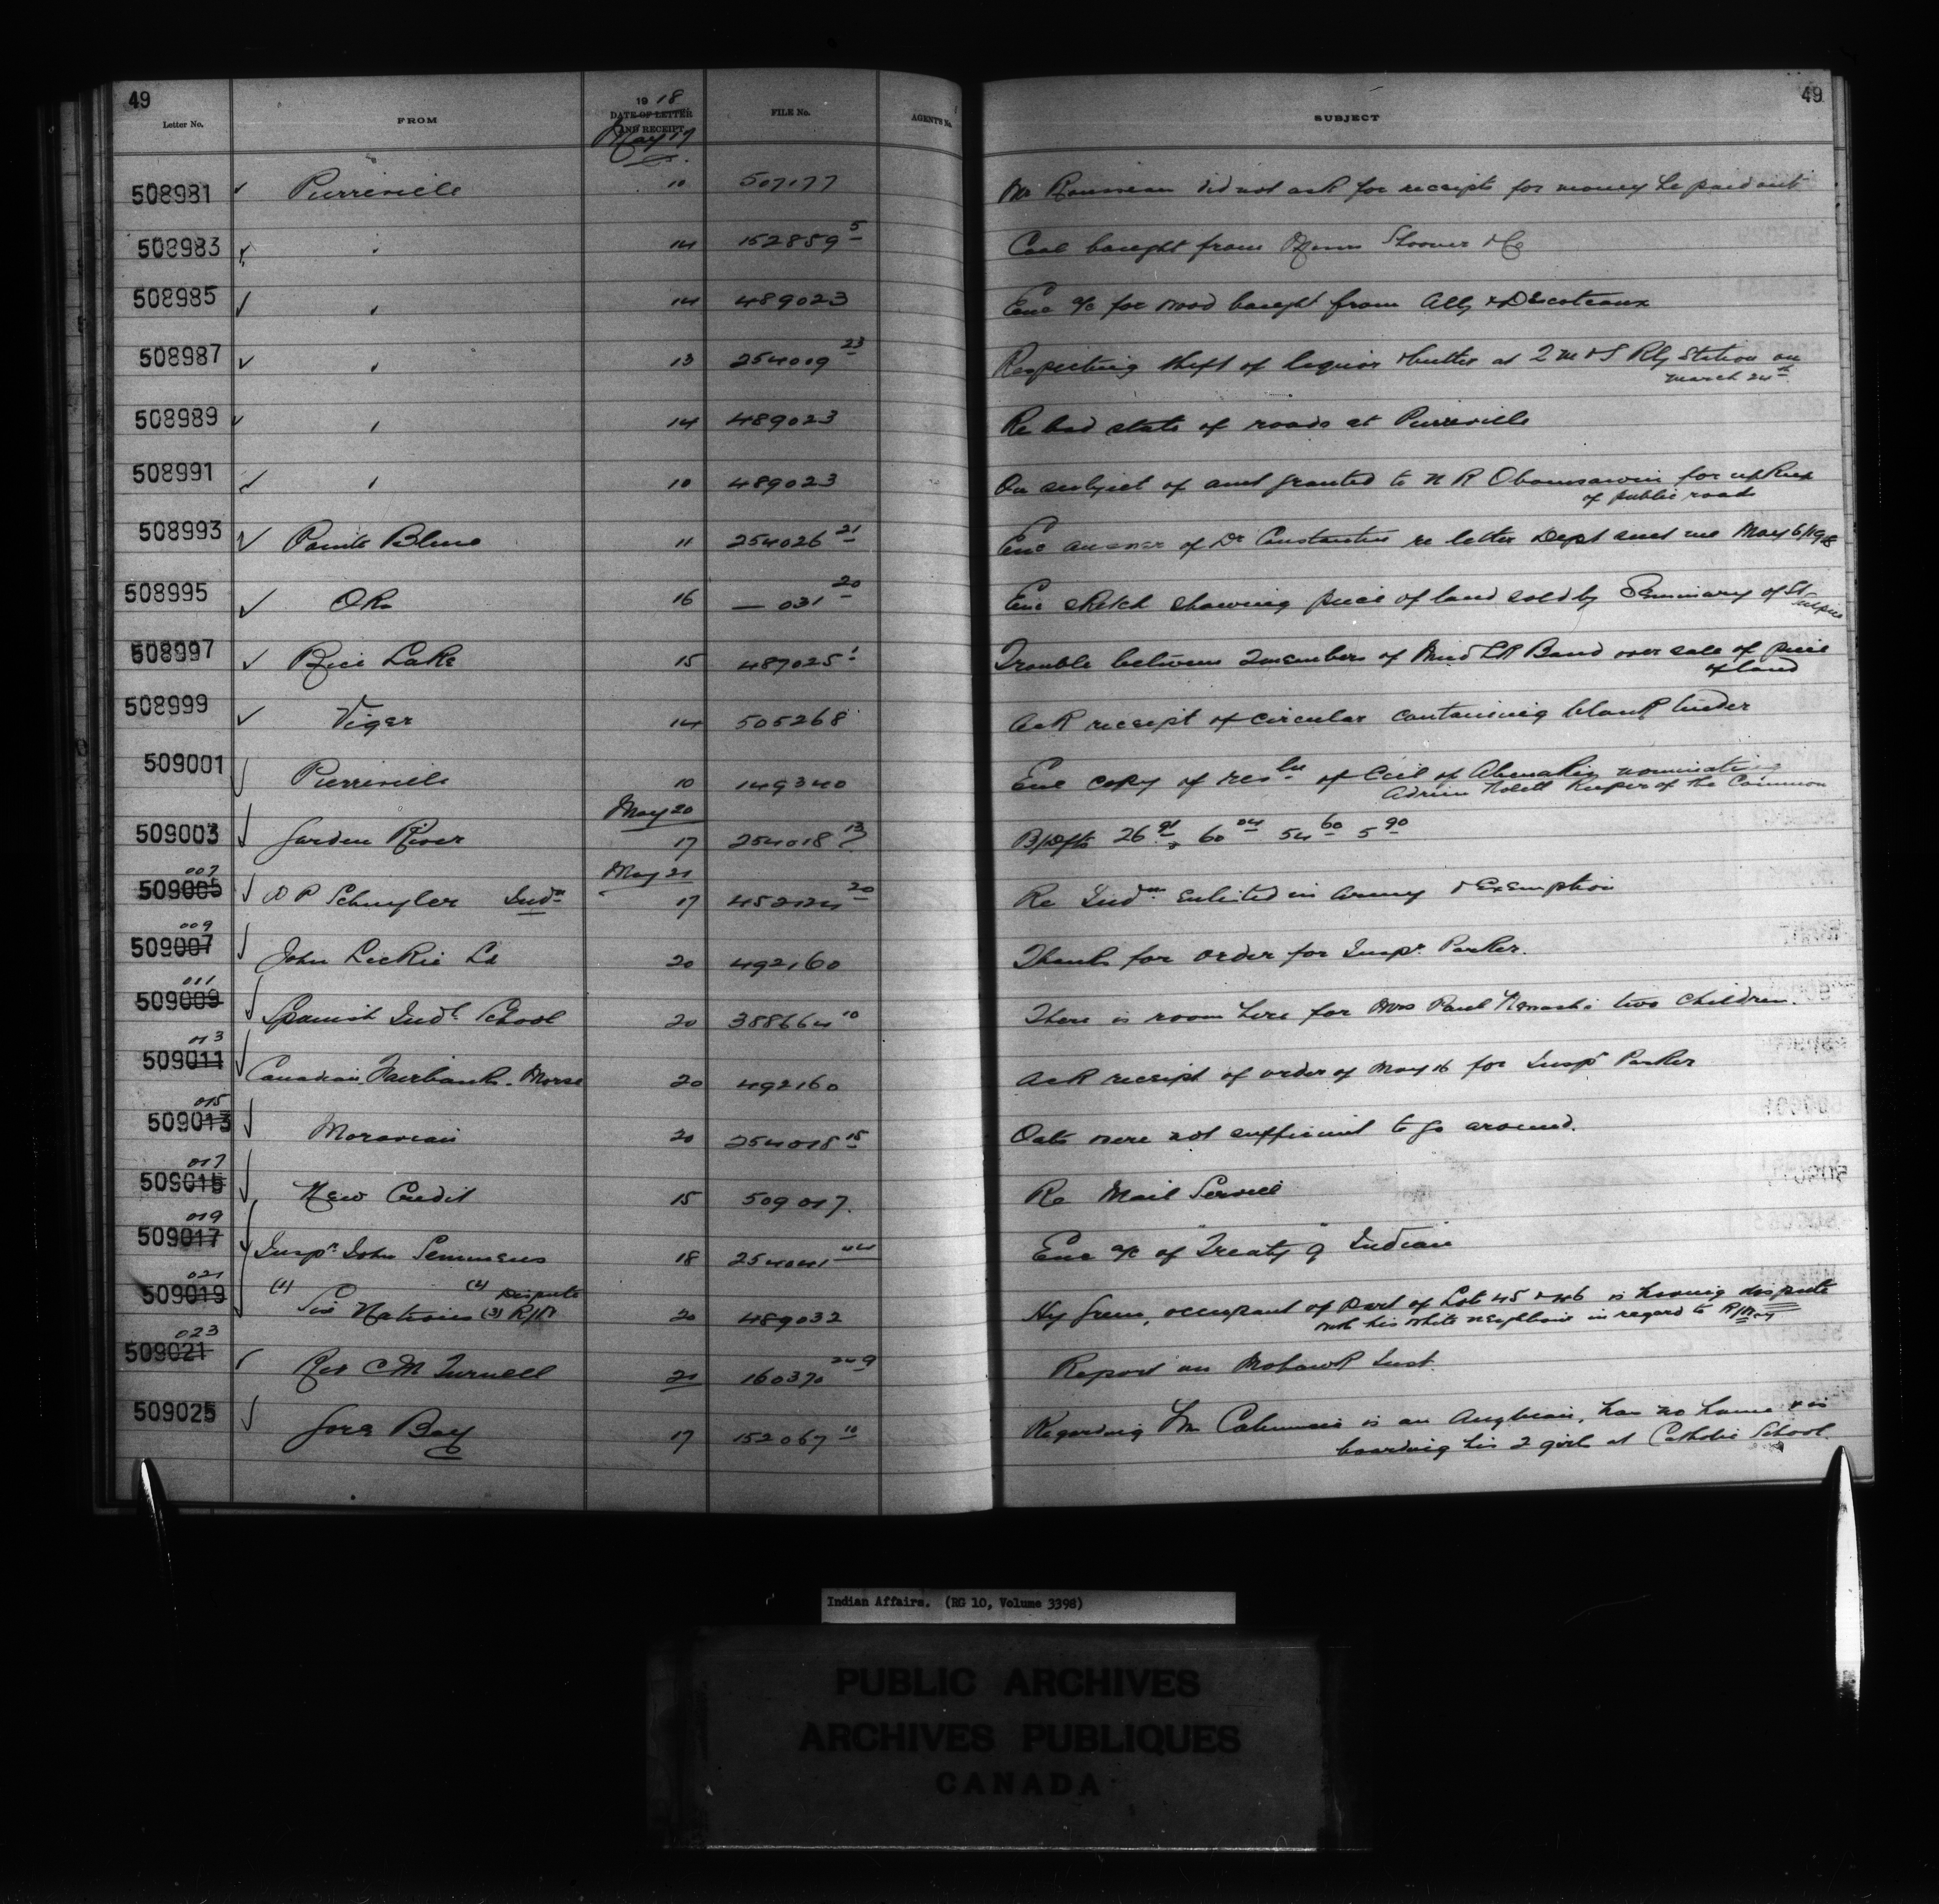 49
49
Letter No. FROM 19 18 DATE OF LETTER AND RECEIPT FILE No. AGENT'S No. SUBJECT
May 17
508981 ✓ Pierreville 10 507177 Mr Rousseau did not ask for receipts for money he paid out
508983 ✓ " 14 152859 5 Coal bought from Shooner & Co
508985 ✓ " 14 489023 Enc a/c for wood bought from & Descoteaux
508987 ✓ " 13 254009 23 Respecting theft of liquor & butter at 2 M & S Rly Station on
March 24th
508989 ✓ " 14 489023 Re bad state of roads at Pierreville
508991 ✓ " 10 489023 On subject of amt granted to N R Obomsawin for upkeep
of public road
508993 ✓ Pointe Bleue 11 254026 21 Enc answer of Dr Constantin re letter Dept sent me May 6/1918
508995 ✓ Oka 16 — 031 20 Enc sketch showing piece of land sold by Seminary of St
Sulpice
508997 ✓ Rice Lake 15 487025 1 Trouble between 2 members of Mud Lk Band over sale of piece
of land
508999 ✓ Viger 14 505268 Ack receipt of circular containing blank tender
509001 ✓ Pierreville 10 149340 Enc copy of resln of Ccil of Abenakis nominating
Adrien Nolett Keeper of the Common
May 20
509003 ✓ Garden River 17 254018 13 B/Dfts 26 91 60 04 54 60 5 90
007 May 21
509005 ✓ D P Schuyler Indn 17 452124 20 Re Indns enlisted in Army & Exemption
009
509007 ✓ John Leckie Ld 20 492160 Thanks for order for Inspr Parker.
011
509009 ✓ Spanish Indl School 20 388664 10 There is room here for Mrs Paul two children.
013
509011 ✓ Canadian Fairbanks-Morse 20 492160 Ack receipt of order of May 16 for Inspr Parker
015
509013 ✓ Moravian 20 254018 15 Oats were not sufficient to go around.
017
509015 ✓ New Credit 15 509017. Re Mail Service
019
509017 ✓ Inspr John Semmens 18 254041 44 Enc a/c of "Treaty 9" Indian
021 (1) (2) Dispute
509019 ✓ Six Nations (3) R/W 20 489032 Hy Green, occupant of part of Lot 45 & 46 is having dispute
with his white neighbours in regard to R/Way
023
509021 ✓ Rev C M Turnell 21 160370 249 Report on Mohawk Inst.
509025 ✓ Gore Bay 17 152067 10 Regarding Wm is an Anglican, has no home & is
boarding his 2 girls at Catholic School.
Indian Affairs. (RG 10, Volume 3398)
PUBLIC ARCHIVES
ARCHIVES PUBLIQUES
CANADA